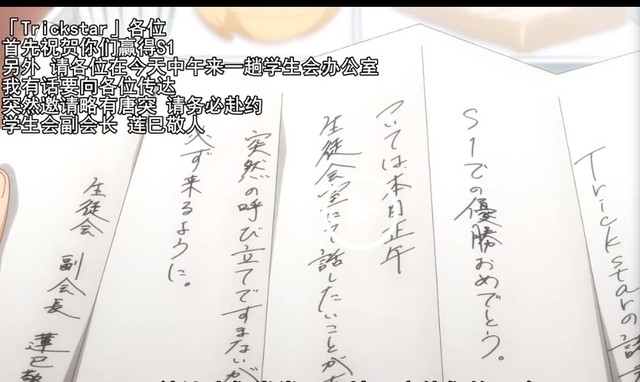 「Trickstar」各位
首先祝贺你们赢得S1
另外 请各位在今天中午来一趟学生会办公室
我有话要向各位传达
突然邀请略有唐突 请务必赴约
学生会副会长 莲巳敬人
Trickstarの諸
S1での優勝おめでとう。
ついては本日正午
生徒会室にて話したいことが
突然の呼び立てですまないが
必ず来るように。
生徒会 副会長 蓮巳敬